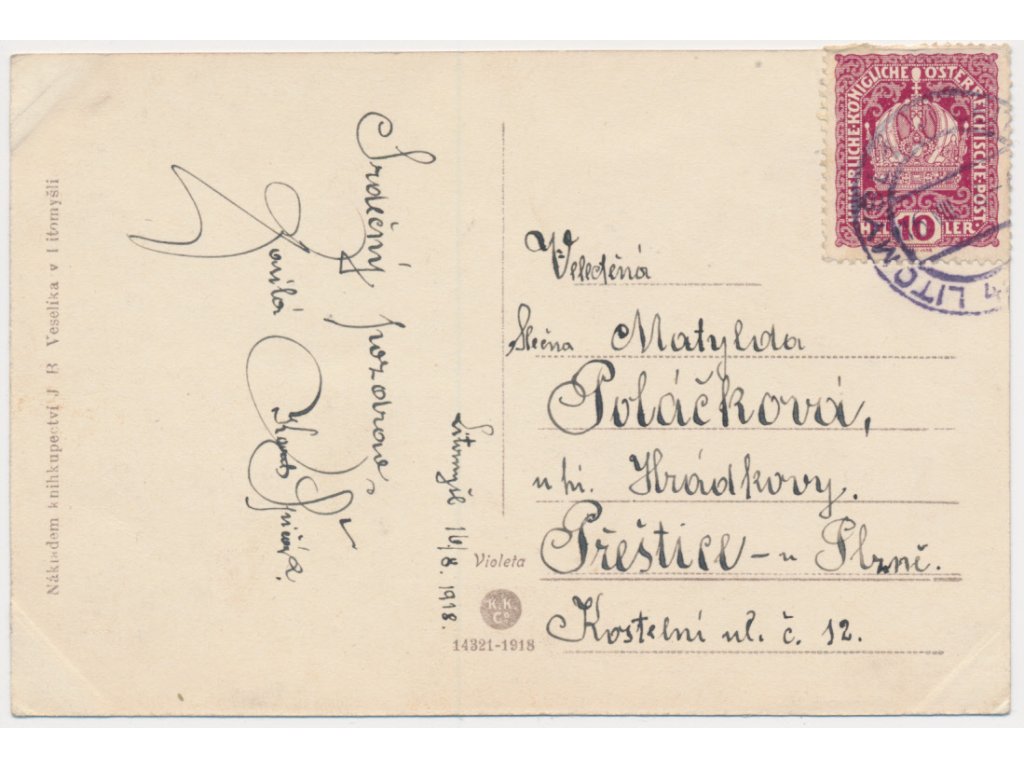 Nákladem knihkupectví J B Veselíka v Litomyšli
Srdečný pozdrav
zasílá
Litomyšl 16/8. 1918.
Violeta
K.K.
Co
14321-1918
KAISERLICHE·KÖNIGLICHE·ÖSTERREICHISCHE·POST
10
HELLER
LITOM
Veleděná
Slečna Matylda
Poláčková,
u pí. Hrádkovy.
Přeštice – u Plzně.
Kostelní ul. č. 12.